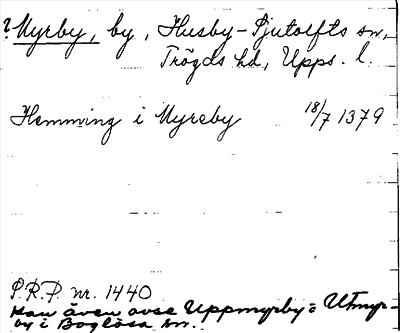 ? Myrby, by, Husby-Sjutolfts sn,
Trögds hd, Upps. l.
Hemming i Myreby 18/7 1379
S.R.P. nr. 1440
Kan även avse Uppmyrby = Utmyr-
by i Boglösa sn.